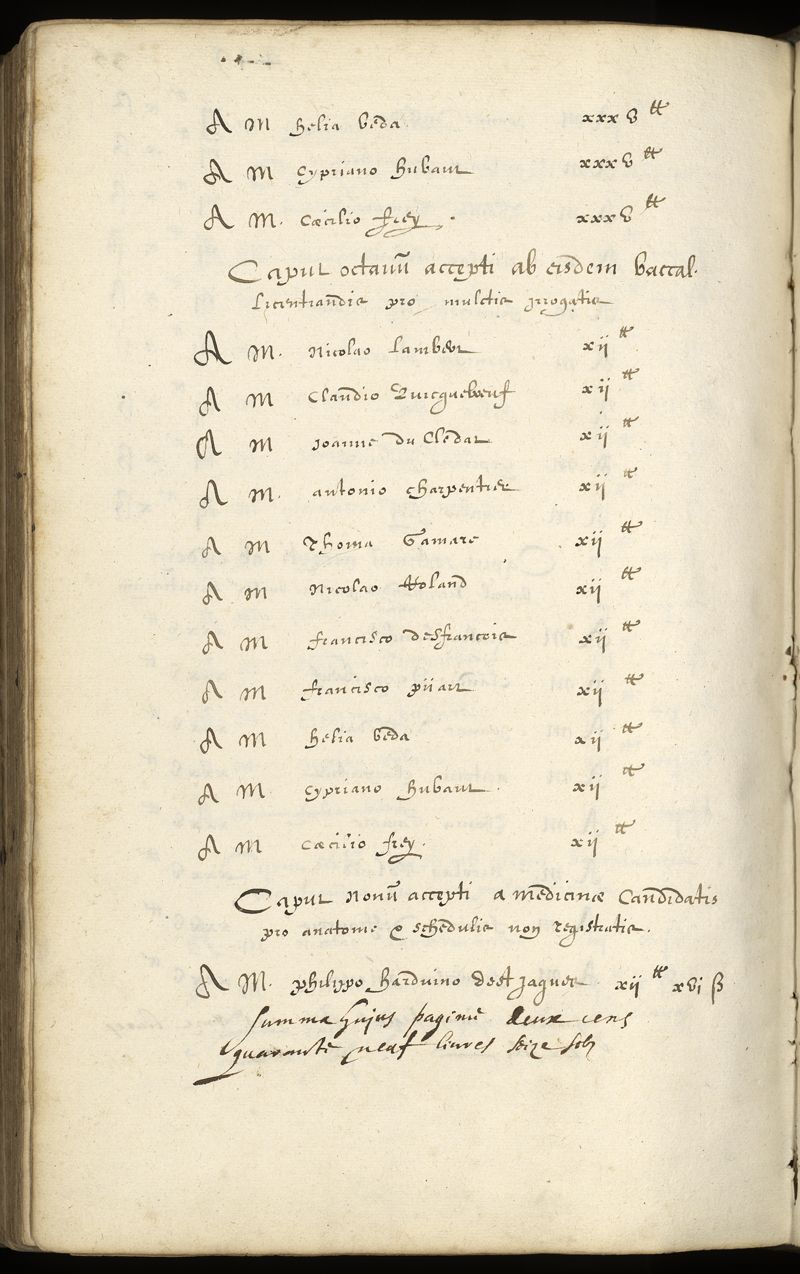 A M Helia Béda xxxv tt
A M Cypriano Hubaut xxxv tt
A M. Cæcilio frey. xxxv tt
Caput octauū acceptī ab eisdem baccal.
licentiandis pro mulctis irrogatis
A M. Nicolao Lambert xij tt
A M Claudio Quicquebœuf xij tt
A M Joanne du Clédat xij tt
A M. antonio charpentier xij tt
A M Thoma Gamare xij tt
A M Nicolao xij tt
A M francisco desfrancois xij tt
A M francisco piiart xij tt
A M Helia Béda xij tt
A M Cypriano Hubaut. xij tt
A M Cæcilio frey. xij tt
Caput Nonū accepti a medicinæ Candidatis
pro anatome & schedulis non registratis.
A M. philippo Harduino de st Jaques xij tt xvj ß
Summa hujus pagine deux cens
quarante neuf liures seize solz